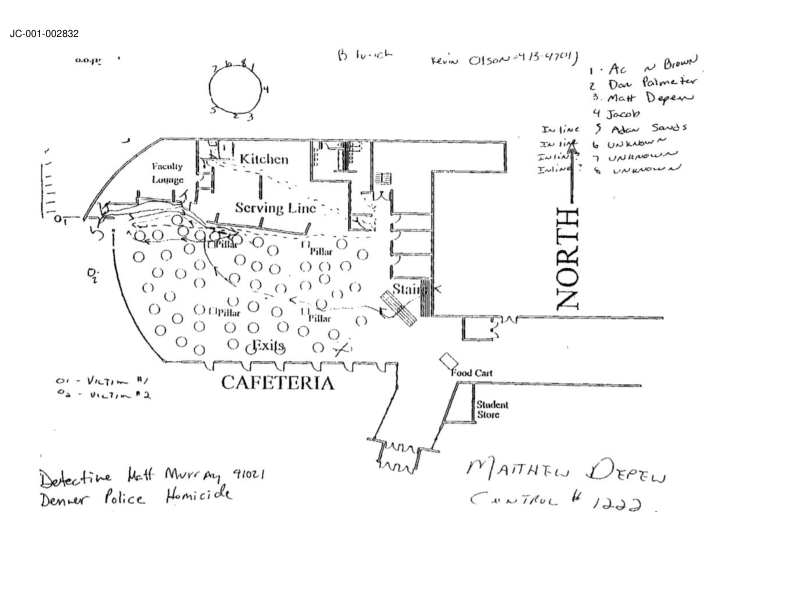 JC-001-002832
B lunch
Kevin Olson 413-4701)
7 6 8 1
4
5 2 3
1 . Ac n Brown
2 Dan Palmeter
3. Matt Depew
4 Jacob
In line 5 Adam Sands
In line 6 UNKNOWN
Inline 7 UNKNOWN
Inline 8 UNKNOWN
Faculty
Lounge
Kitchen
Serving Line
NORTH
O1
O2
Pillar
Pillar
Stairs
Pillar
Pillar
Exits
CAFETERIA
Food Cart
Student
Store
O1 - Victim #1
O2 - Victim #2
Detective Matt Murray 91021
Denver Police Homicide
MATTHEW DEPEW
CONTROL # 1222